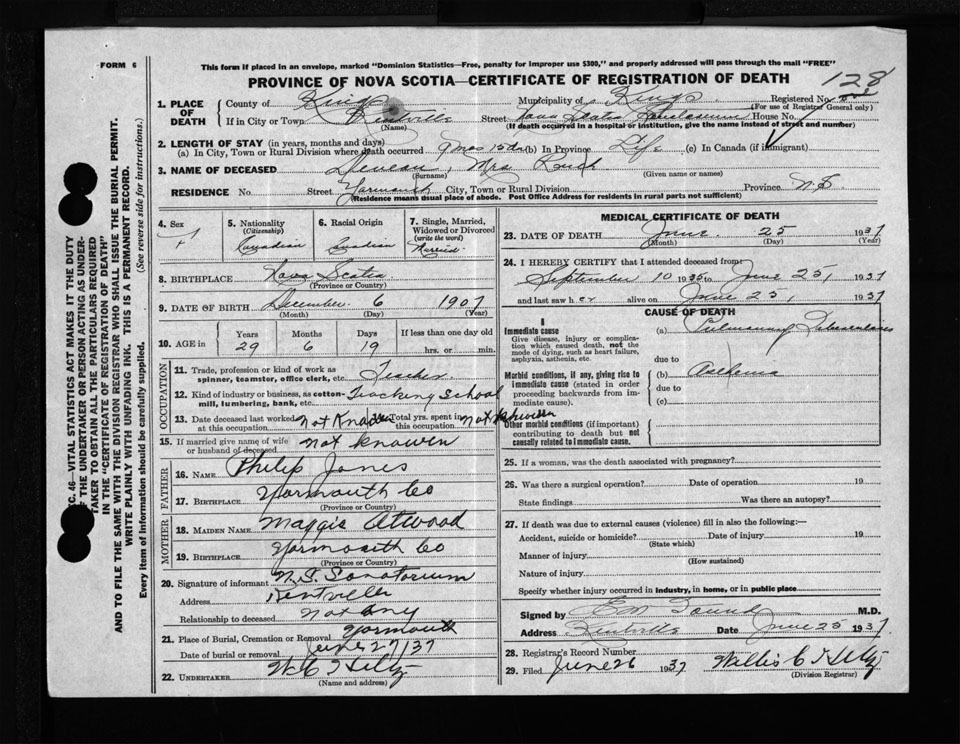 FORM 6
This form if placed in an envelope, marked "Dominion Statistics—Free, penalty for improper use $300," and properly addressed will pass through the mail "FREE"
PROVINCE OF NOVA SCOTIA—CERTIFICATE OF REGISTRATION OF DEATH
128
1. PLACE OF DEATH
County of Kings Municipality of Kings Registered No.
(For use of Registrar General only)
If in City or Town Kentville Street Nova Scotia Sanatorium House No.
(Name) (If death occurred in a hospital or institution, give the name instead of street and number)
2. LENGTH OF STAY (in years, months and days)
(a) In City, Town or Rural Division where death occurred 9 mos 15 ds (b) In Province Life (c) In Canada (if immigrant)
3. NAME OF DECEASED Mrs
(Surname) (Given name or names)
RESIDENCE No. Street Yarmouth City, Town or Rural Division Province N.S.
(Residence means usual place of abode. Post Office Address for residents in rural parts not sufficient)
4. Sex F
5. Nationality (Citizenship) Canadian
6. Racial Origin Canadian
7. Single, Married, Widowed or Divorced (write the word) Married
8. BIRTHPLACE Nova Scotia
(Province or Country)
9. DATE OF BIRTH December 6 1907
(Month) (Day) (Year)
10. AGE in Years Months Days If less than one day old
29 6 19 hrs. or min.
OCCUPATION
11. Trade, profession or kind of work as spinner, teamster, office clerk, etc. Teacher
12. Kind of industry or business, as cotton-mill, lumbering, bank, etc. Teaching School
13. Date deceased last worked at this occupation Not Known
Total yrs. spent in this occupation Not Known
15. If married give name of wife or husband of deceased not known
FATHER
16. NAME Philip Jones
17. BIRTHPLACE Yarmouth Co
(Province or Country)
MOTHER
18. MAIDEN NAME Maggie Atwood
19. BIRTHPLACE Yarmouth Co
(Province or Country)
20. Signature of informant N.S. Sanatorium
Address Kentville
Relationship to deceased Not any
21. Place of Burial, Cremation or Removal Yarmouth
Date of burial or removal June 27/37
22. UNDERTAKER
(Name and address)
MEDICAL CERTIFICATE OF DEATH
23. DATE OF DEATH June 25 1937
(Month) (Day) (Year)
24. I HEREBY CERTIFY that I attended deceased from
September 10 1936 to June 25, 1937
and last saw h er alive on June 25, 1937
CAUSE OF DEATH
I
Immediate cause
Give disease, injury or complication which caused death, not the mode of dying, such as heart failure, asphyxia, asthenia, etc.
(a) Pulmonary Tuberculosis
due to
Morbid conditions, if any, giving rise to immediate cause (stated in order proceeding backwards from immediate cause).
(b)
due to
(c)
Other morbid conditions (if important) contributing to death but not causally related to immediate cause.
25. If a woman, was the death associated with pregnancy?
26. Was there a surgical operation? Date of operation 19
State findings Was there an autopsy?
27. If death was due to external causes (violence) fill in also the following:—
Accident, suicide or homicide? Date of injury 19
(State which)
Manner of injury
(How sustained)
Nature of injury
Specify whether injury occurred in industry, in home, or in public place
Signed by M.D.
Address Kentville Date June 25 1937
28. Registrar's Record Number
29. Filed June 26 1937
(Division Registrar)
SEC. 46—VITAL STATISTICS ACT MAKES IT THE DUTY
OF THE UNDERTAKER OR PERSON ACTING AS UNDER-
TAKER TO OBTAIN ALL THE PARTICULARS REQUIRED
IN THE "CERTIFICATE OF REGISTRATION OF DEATH"
AND TO FILE THE SAME WITH THE DIVISION REGISTRAR WHO SHALL ISSUE THE BURIAL PERMIT.
WRITE PLAINLY WITH UNFADING INK. THIS IS A PERMANENT RECORD.
Every item of Information should be carefully supplied. (See reverse side for instructions.)